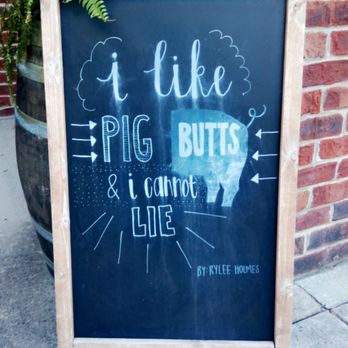 i like
PIG BUTTS
& i cannot
LIE
BY: RYLEE HOLMES